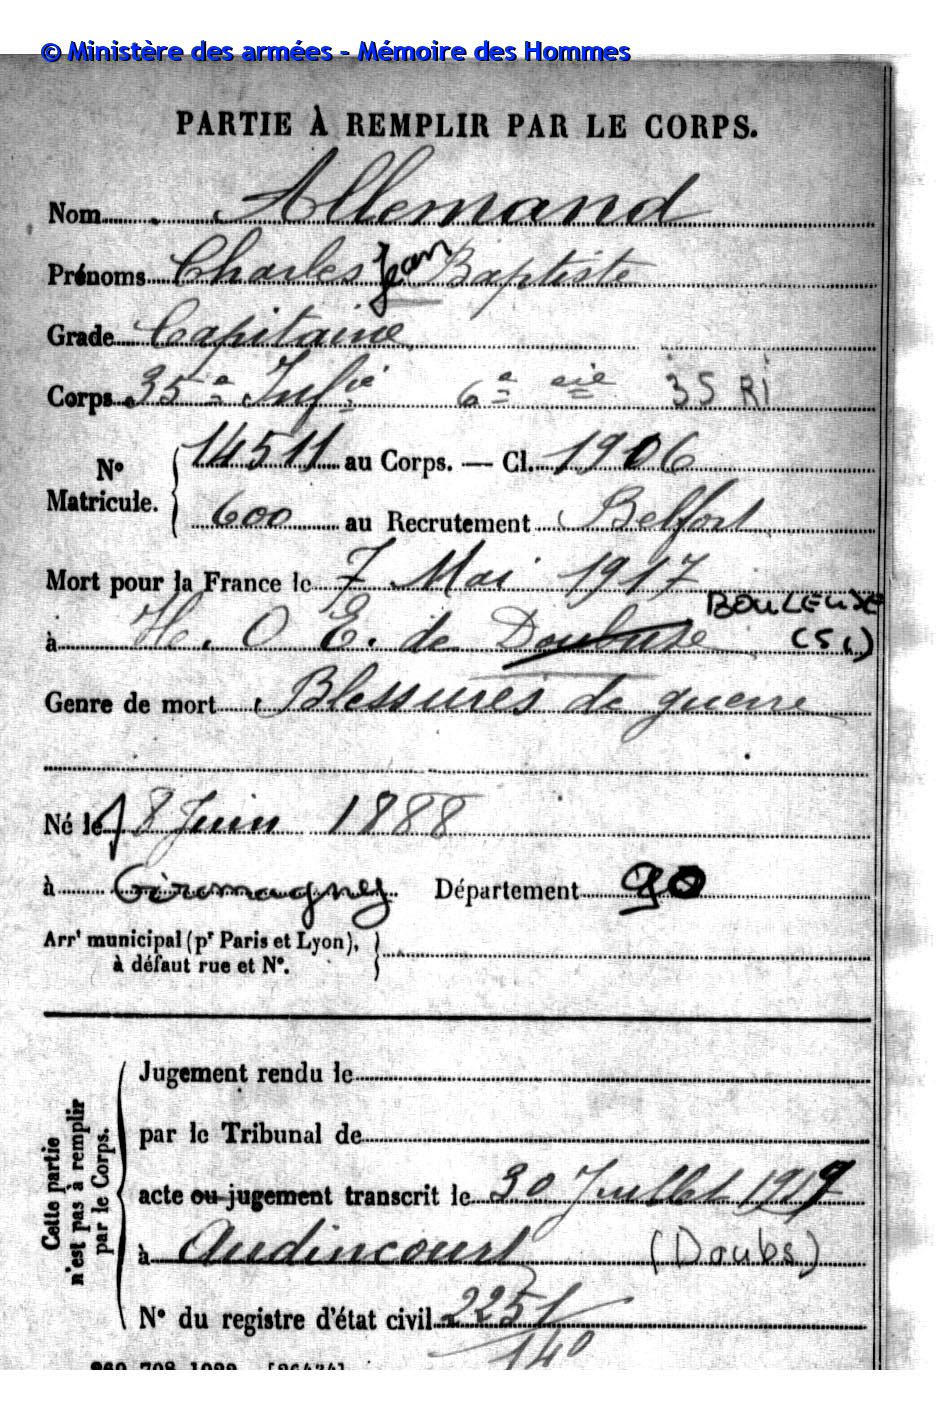 © Ministère des armées - Mémoire des Hommes
PARTIE À REMPLIR PAR LE CORPS.
Nom Allemand
Prénoms Charles Jean Baptiste
Grade Capitaine
Corps 35e Infie 6e cie 35 RI
No Matricule. 14511 au Corps. — Cl. 1906
600 au Recrutement Belfort
Mort pour la France le 7 Mai 1917
BOULEUSE
à H. O E. de (51)
Genre de mort Blessures de guerre
Né le 8 Juin 1888
à Giromagny Département 90
Arrt municipal (pr Paris et Lyon),
à défaut rue et No.
Cette partie n'est pas à remplir par le Corps.
Jugement rendu le
par le Tribunal de
acte ou jugement transcrit le 30 Juillet 1919
à Audincourt (Doubs)
No du registre d'état civil 2251
140